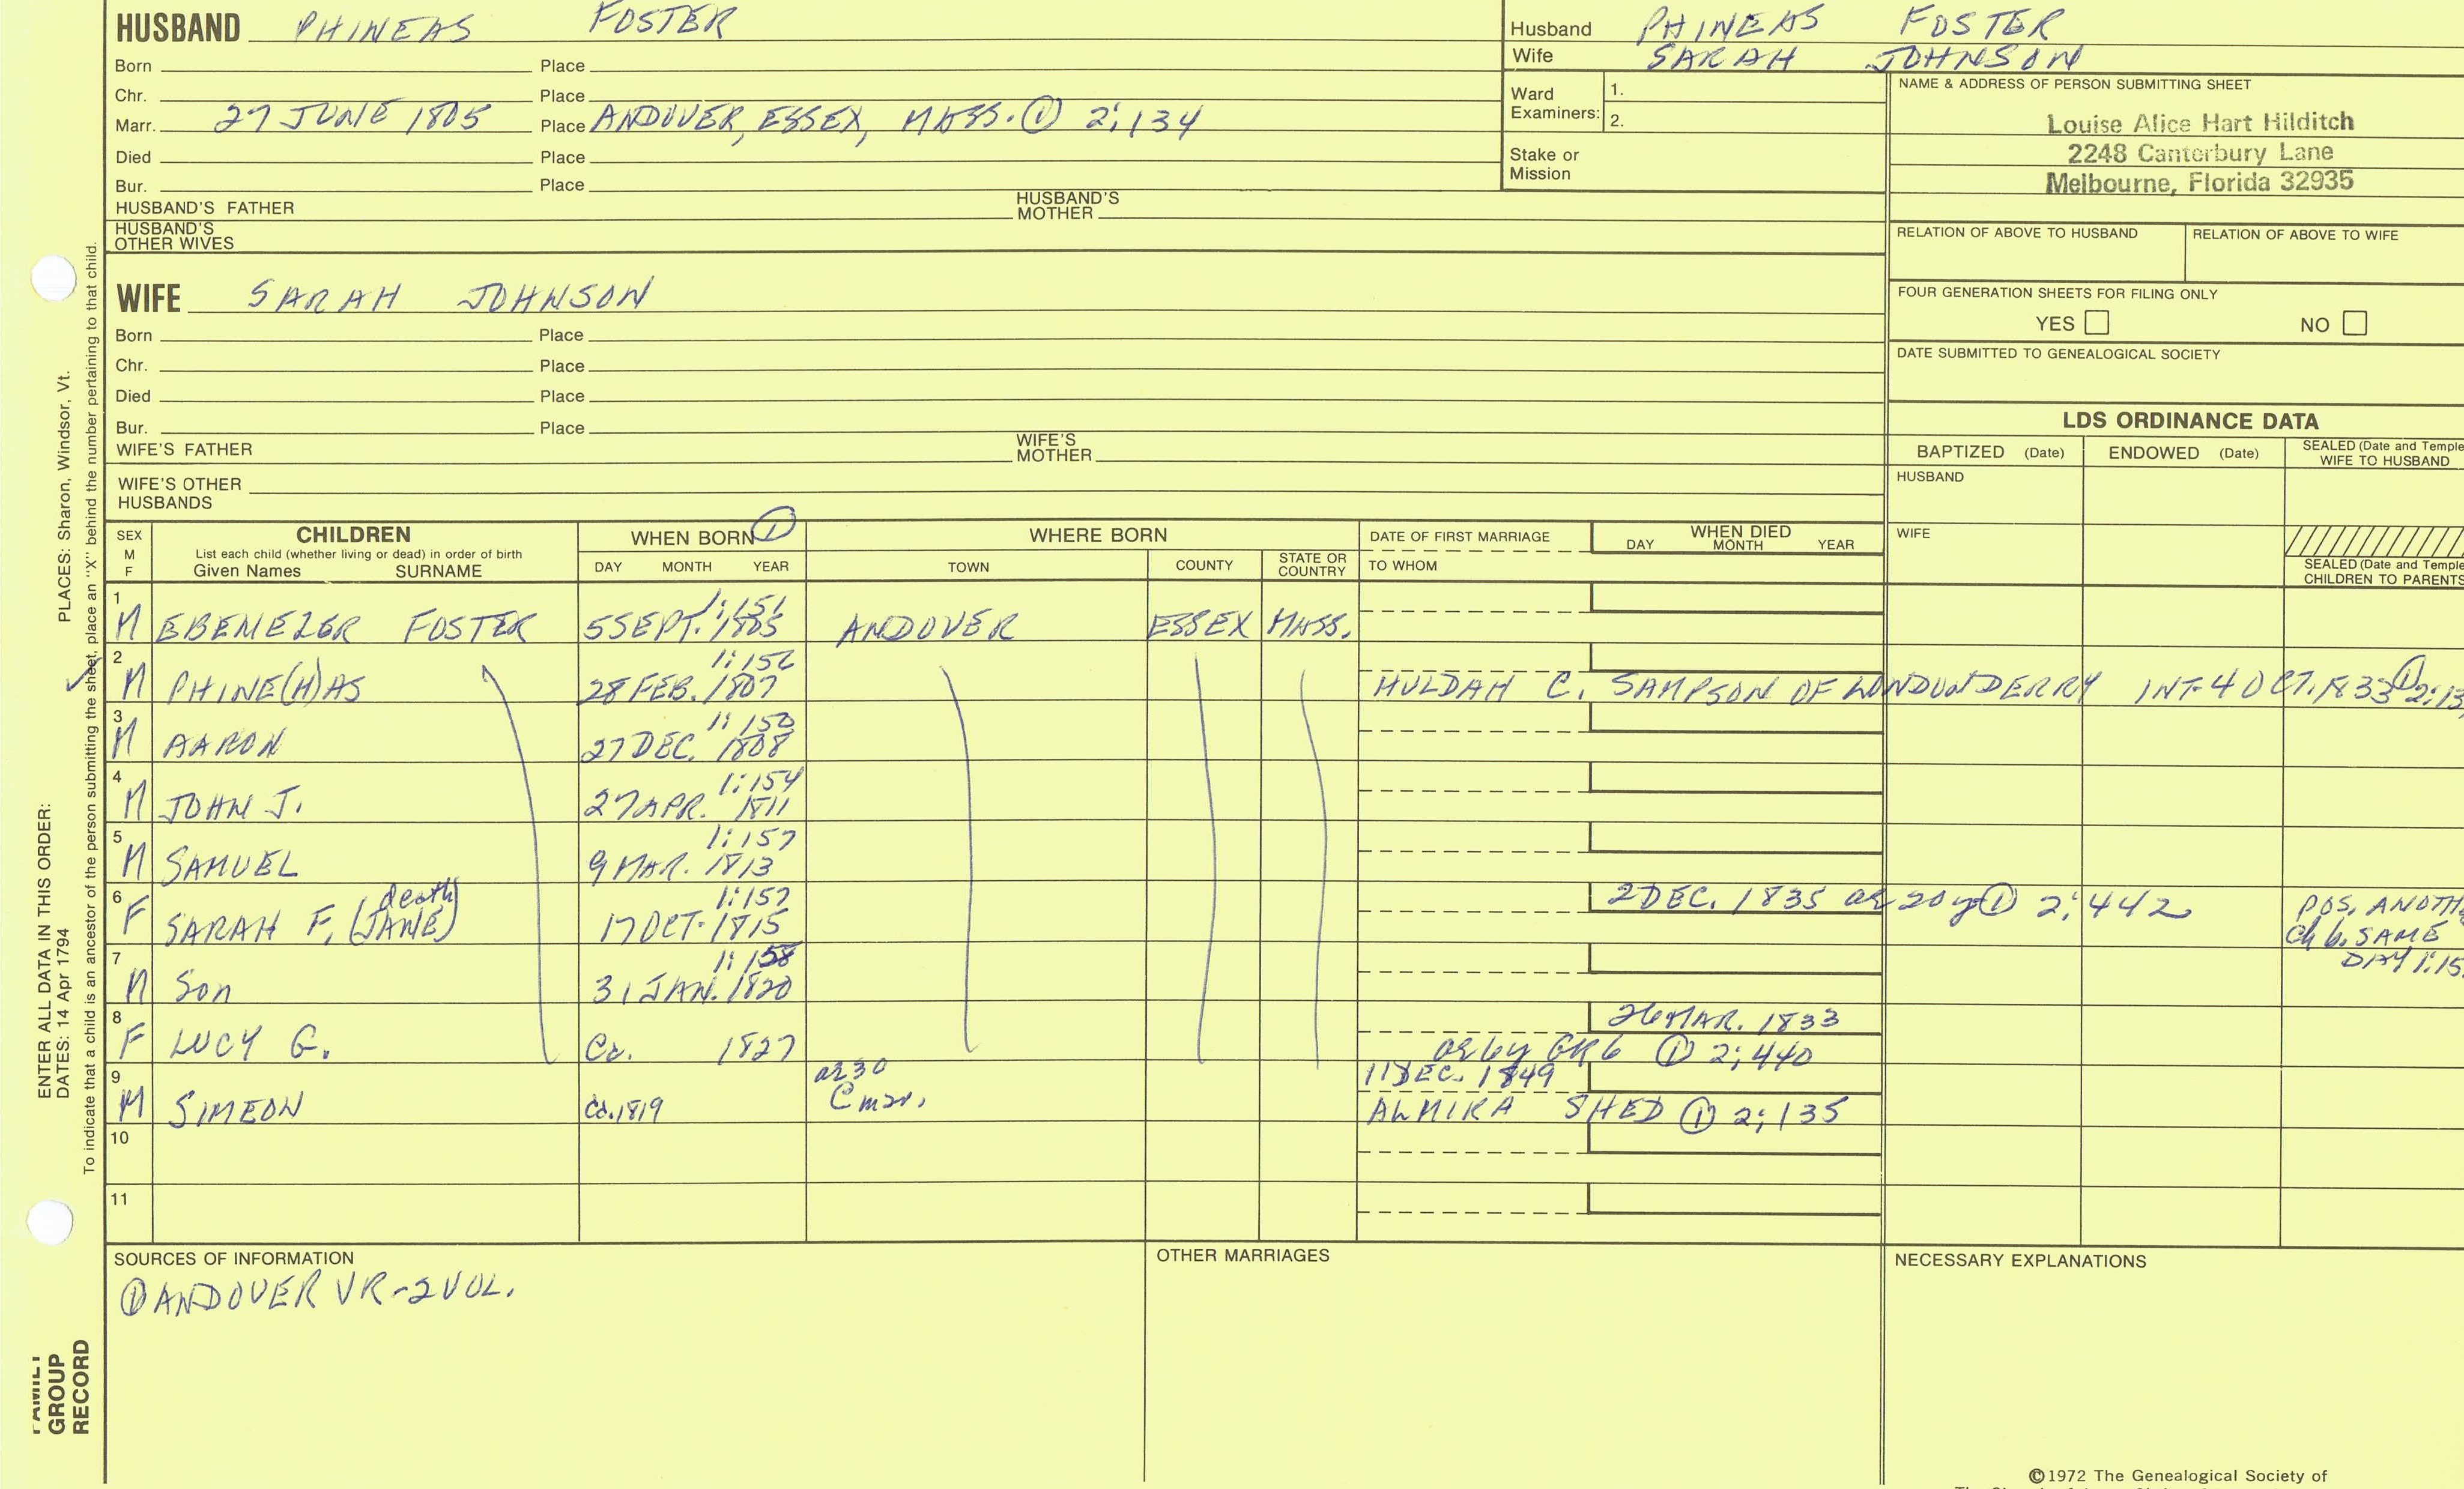 HUSBAND PHINEAS FOSTER
Born Place
Chr. Place
Marr. 27 JUNE 1805 Place ANDOVER, ESSEX, MASS. ① 2:134
Died Place
Bur. Place
HUSBAND'S FATHER HUSBAND'S MOTHER
HUSBAND'S OTHER WIVES
Husband PHINEAS FOSTER
Wife SARAH JOHNSON
Ward Examiners: 1.
2.
Stake or Mission
NAME & ADDRESS OF PERSON SUBMITTING SHEET
Louise Alice Hart Hilditch
2248 Canterbury Lane
Melbourne, Florida 32935
RELATION OF ABOVE TO HUSBAND RELATION OF ABOVE TO WIFE
FOUR GENERATION SHEETS FOR FILING ONLY
YES NO
DATE SUBMITTED TO GENEALOGICAL SOCIETY
WIFE SARAH JOHNSON
Born Place
Chr. Place
Died Place
Bur. Place
WIFE'S FATHER WIFE'S MOTHER
WIFE'S OTHER HUSBANDS
LDS ORDINANCE DATA
BAPTIZED (Date) ENDOWED (Date) SEALED (Date and Temple
WIFE TO HUSBAND
HUSBAND
WIFE
SEALED (Date and Temple
CHILDREN TO PARENTS
SEX M F
CHILDREN
List each child (whether living or dead) in order of birth
Given Names SURNAME
WHEN BORN ①
DAY MONTH YEAR
WHERE BORN
TOWN COUNTY STATE OR COUNTRY
DATE OF FIRST MARRIAGE
TO WHOM
WHEN DIED
DAY MONTH YEAR
1 1:151
M EBENEZER FOSTER 5 SEPT. 1805 ANDOVER ESSEX MASS.
2 1:156
M PHINE(H)AS 28 FEB. 1807 HULDAH C. SAMPSON OF LONDUNDERRY INT. 4 OCT. 1833 ① 2:13
3 1:150
M AARON 27 DEC. 1808
4 1:154
M JOHN J. 27 APR. 1811
5 1:157
M SAMUEL 9 MAR. 1813
6 death 1:157 2 DEC. 1835 ae 20y ① 2:442 POS. ANOTH
F SARAH F. (JANE) 17 OCT. 1815 Ch b. SAME
DAY 1:15
7 1:158
M Son 31 JAN. 1820
8 26 MAR. 1833
F LUCY G. Ca. 1827 ae 6y GR6 ① 2:440
9 ae 30 11 DEC. 1849
M SIMEON Ca. 1819 @ mar. ALMIRA SHED ① 2:135
10
11
SOURCES OF INFORMATION
① ANDOVER VR - 2 VOL.
OTHER MARRIAGES
NECESSARY EXPLANATIONS
©1972 The Genealogical Society of
ENTER ALL DATA IN THIS ORDER:
DATES: 14 Apr 1794
PLACES: Sharon, Windsor, Vt.
To indicate that a child is an ancestor of the person submitting the sheet, place an "X" behind the number pertaining to that child.
FAMILY
GROUP
RECORD